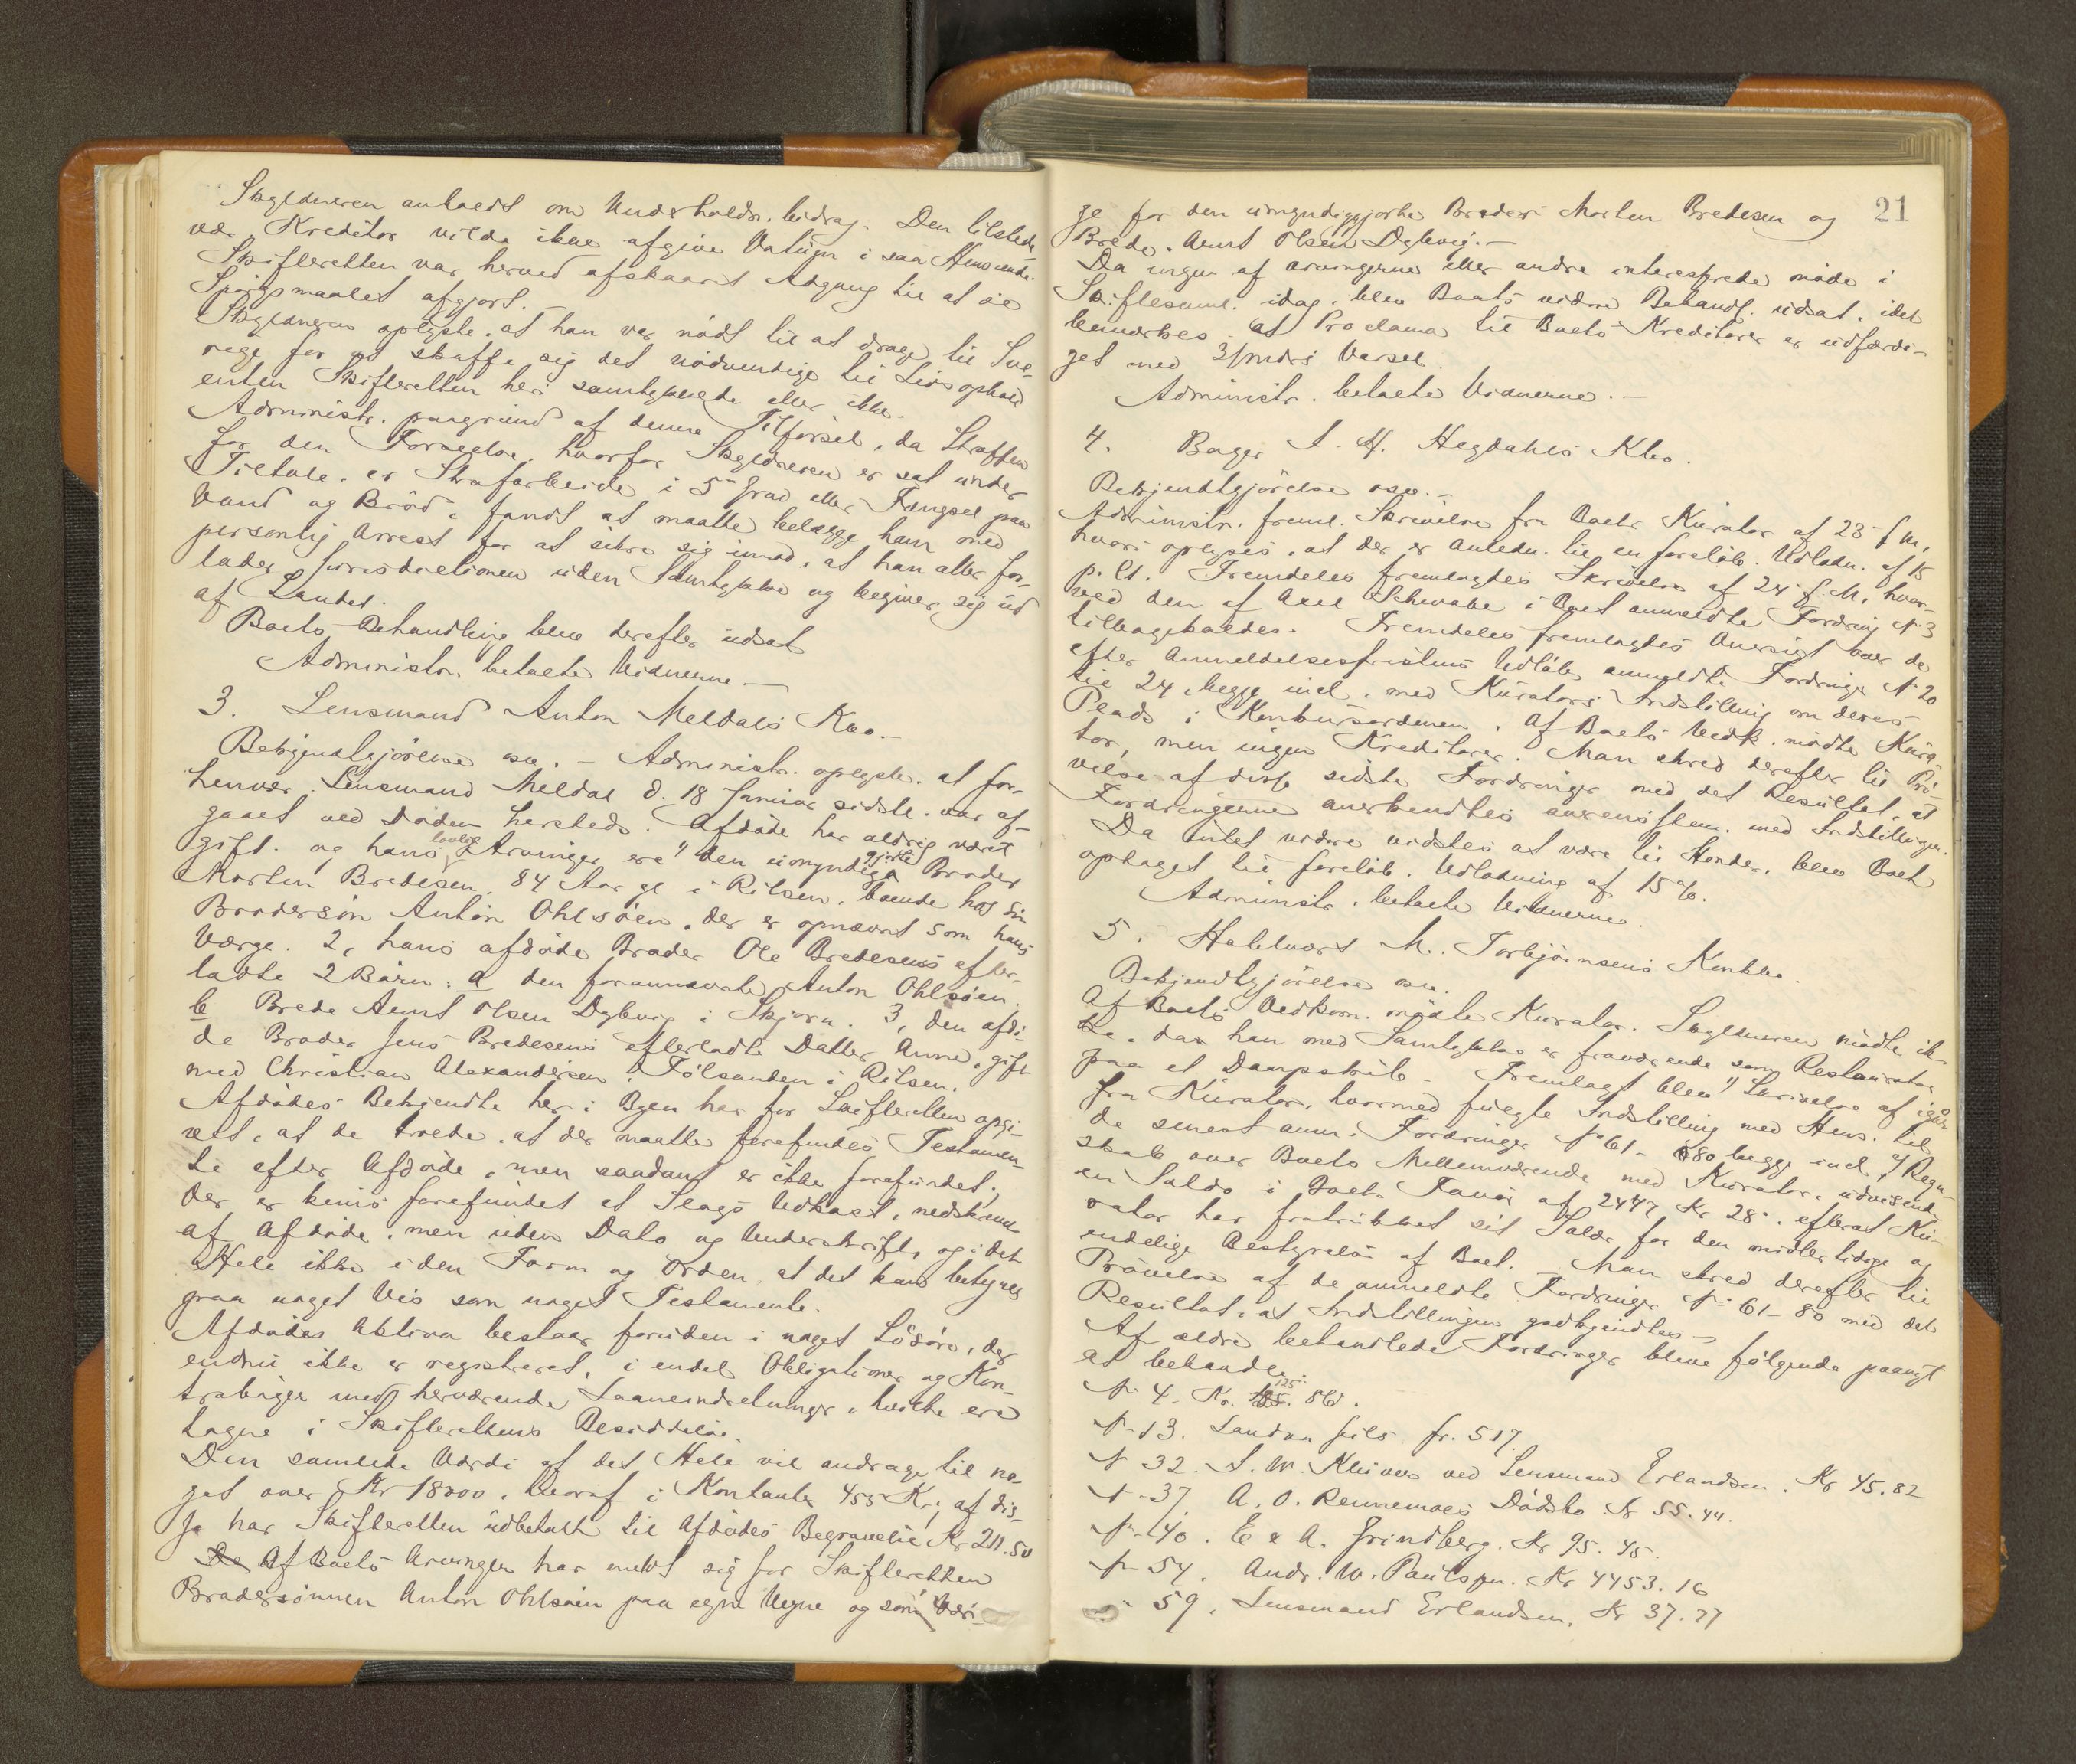 Skyldneren anholdt om Underholdn. bidrag. Den tilstede
vær. Kreditor vilde ikke afgive Votum i saa Henseende.
Skifteretten var herved afskaaret Adgang til at se
Spørgsmaalet afgjort. -
Skyldneren oplyste, at han var nødt til at drage til Sve-
rige for at skaffe sig det nødvendige til Livsophold
enten Skifteretten heri samtykkede eller ikke.
Administr. paagrund af denne Tilførsel, da Straffen
for den Forseelse, hvorfor Skyldneren er sat under
Tiltale, er Strafarbeide i 5te Grad eller Fængsel paa
Vand og Brød, fandt at maatte belægge ham med
personlig Arrest for at sikre sig imod, at han atter for-
lader Jurisdictionen uden Samtykke og begiver sig ud
af Landet.
Boets Behandling blev derefter udsat
Administr. betalte Vidnerne. -
3. Lensmand Anton Meldals Bo. -
Bekjendtgjørelse osv. - Administr. oplyste, at for-
henvær. Lensmand Meldal d. 18 Januar sidstl. var af-
gaaet ved Døden hersteds. Afdøde har aldrig været
gift. og hans lovlige Arvinger ere 1, den umyndiggjorte Broder
Morten Bredesen, 84 Aar gl. i Rilsen, boende hos sin
Brodersøn Anton Ohlsøen, der er opnævnt som hans
Værge. 2, hans afdøde Broder Ole Bredesens efter-
ladte 2 Børn: a den forannævnte Anton Ohlsøen.
b Brede Aent Olsen Dybvig i Skjørn. 3, den afdø-
de Broder Jens Bredesens efterladte Datter Anne, gift
med Christian Alexandersen Følsanden i Rilsen.
Afdødes Bekjendte her i Byen har for Skifteretten opgi-
vet, at de troede, at der maatte forefindes Testamen-
te efter Afdøde, men saadant er ikke forefundet;
der er kuns forefundet et Slags Udkast, nedskrevet
af Afdøde, men uden Dato og Underskrift, og i det
Hele ikke i den Form og Orden, at det kan betegnes
paa noget Vis som noget Testamente.
Afdødes Aktiva bestaar foruden i noget Løsøre, der
endnu ikke er registreret, i endel Obligationer og Kon-
trabøger med herværende Laaneindretninger, hvilke ere
tagne i Skifterettens Besiddelse.
Den samlede Værdi af det Hele vil andrage til no-
get over Kr 18000, hvoraf i Kontanter 455 Kr; af dis-
se har Skifteretten udbetalt til Afdødes Begravelse Kr 211.50
De Af Boets Arvinger har meldt sig for Skifteretten
Brodersønnen Anton Ohlsøen paa egne Vegne og som Vær-
21
ge for den umyndiggjorte Broder Morten Bredesen og
Brede Aent Olsen Dybvig. -
Da ingen af Arvingerne eller andre interesserede møde i
Skiftesaml. idag, blev Boets videre Behandl. udsat, idet
bemærkes at Proclama til Boets Kreditorer er udfærdi-
get med 3 Mdrs Varsel.
Administr. betalte Vidnerne. -
4. Bager A. H. Hegdahls Kbo.
Bekjendtgjørelse osv. -
Administr. freml. Skrivelse fra Boets Kurator af 23 f. M.,
hvori oplyses, at der er Anledn. til en foreløb. Udlodn. af 15
p. Ct. Fremdeles fremlagdes Skrivelse af 24 f. M., hvor-
ved den af Axel Schwabe i Boet anmeldte Fordring No 3
tilbagekaldes. Fremdeles fremlagdes Oversigt over de
efter Anmeldelsesfristens Udløb anmeldte Fordringer No 20
til 24, begge incl., med Kurators Indstilling om deres
Plads i Konkursordenen. Af Boets Vedk. mødte Kura-
tor, men ingen Kreditorer. Man skred derefter til Prø-
velse af disse sidste Fordringer med det Resultat, at
Fordringerne anerkendtes overensstem. med Indstillingen.
Da Intet videre vidstes at være til Hinder, blev Boet
optaget til foreløb. Udlodning af 15 %.
Administr. betalte Vidnerne.
5. Hallvard M. Torbjørnsens Konkbo.
Bekjendtgjørelse osv.
Af Boets Vedkom. mødte Kurator. Skyldneren mødte ik-
ke, da han med Samtykke er fraværende som Restauratør
paa et Dampskib. - Fremlagt blev 1) Skrivelse af igaar
fra Kurator, hvormed fulgte Indstilling med Hens. til
de senest anm. Fordringer No 61 - 80 begge incl., 2) Regn-
skab over Boets Mellemværende med Kurator, udvisende
en Saldo i Boets Favør af 2447 Kr 28 ø, efterat Ku-
rator har fratrukket sit Salær for den midlertidige og
endelige Bestyrelse af Boet. - Man skred derefter til
Prøvelse af de anmeldte Fordringer No 61 - 80 med det
Resultat, at Indstillingen godkjendtes -
Af ældre behandlede Fordringer bleve følgende paanyt
at behandle:
No 4. Kr. 125. 86.
No 13. Landva fils fr. 517.
No 32. S. M. Kluwer ved Lensmand Erlandsen. Kr 45.82
No 37. A. O. Rennemoes Dødsbo Kr 55.44.
No 40. E & A. Grindberg. Kr 95.45.
No 54. Andr. W. Paulsen. Kr 4453.16
- 59. Lensmand Erlandsen. Kr 37.77